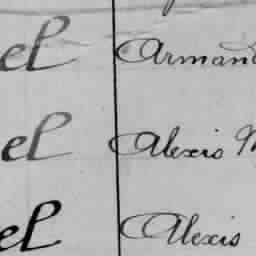 el Armand
el Alexis M
el Alexis